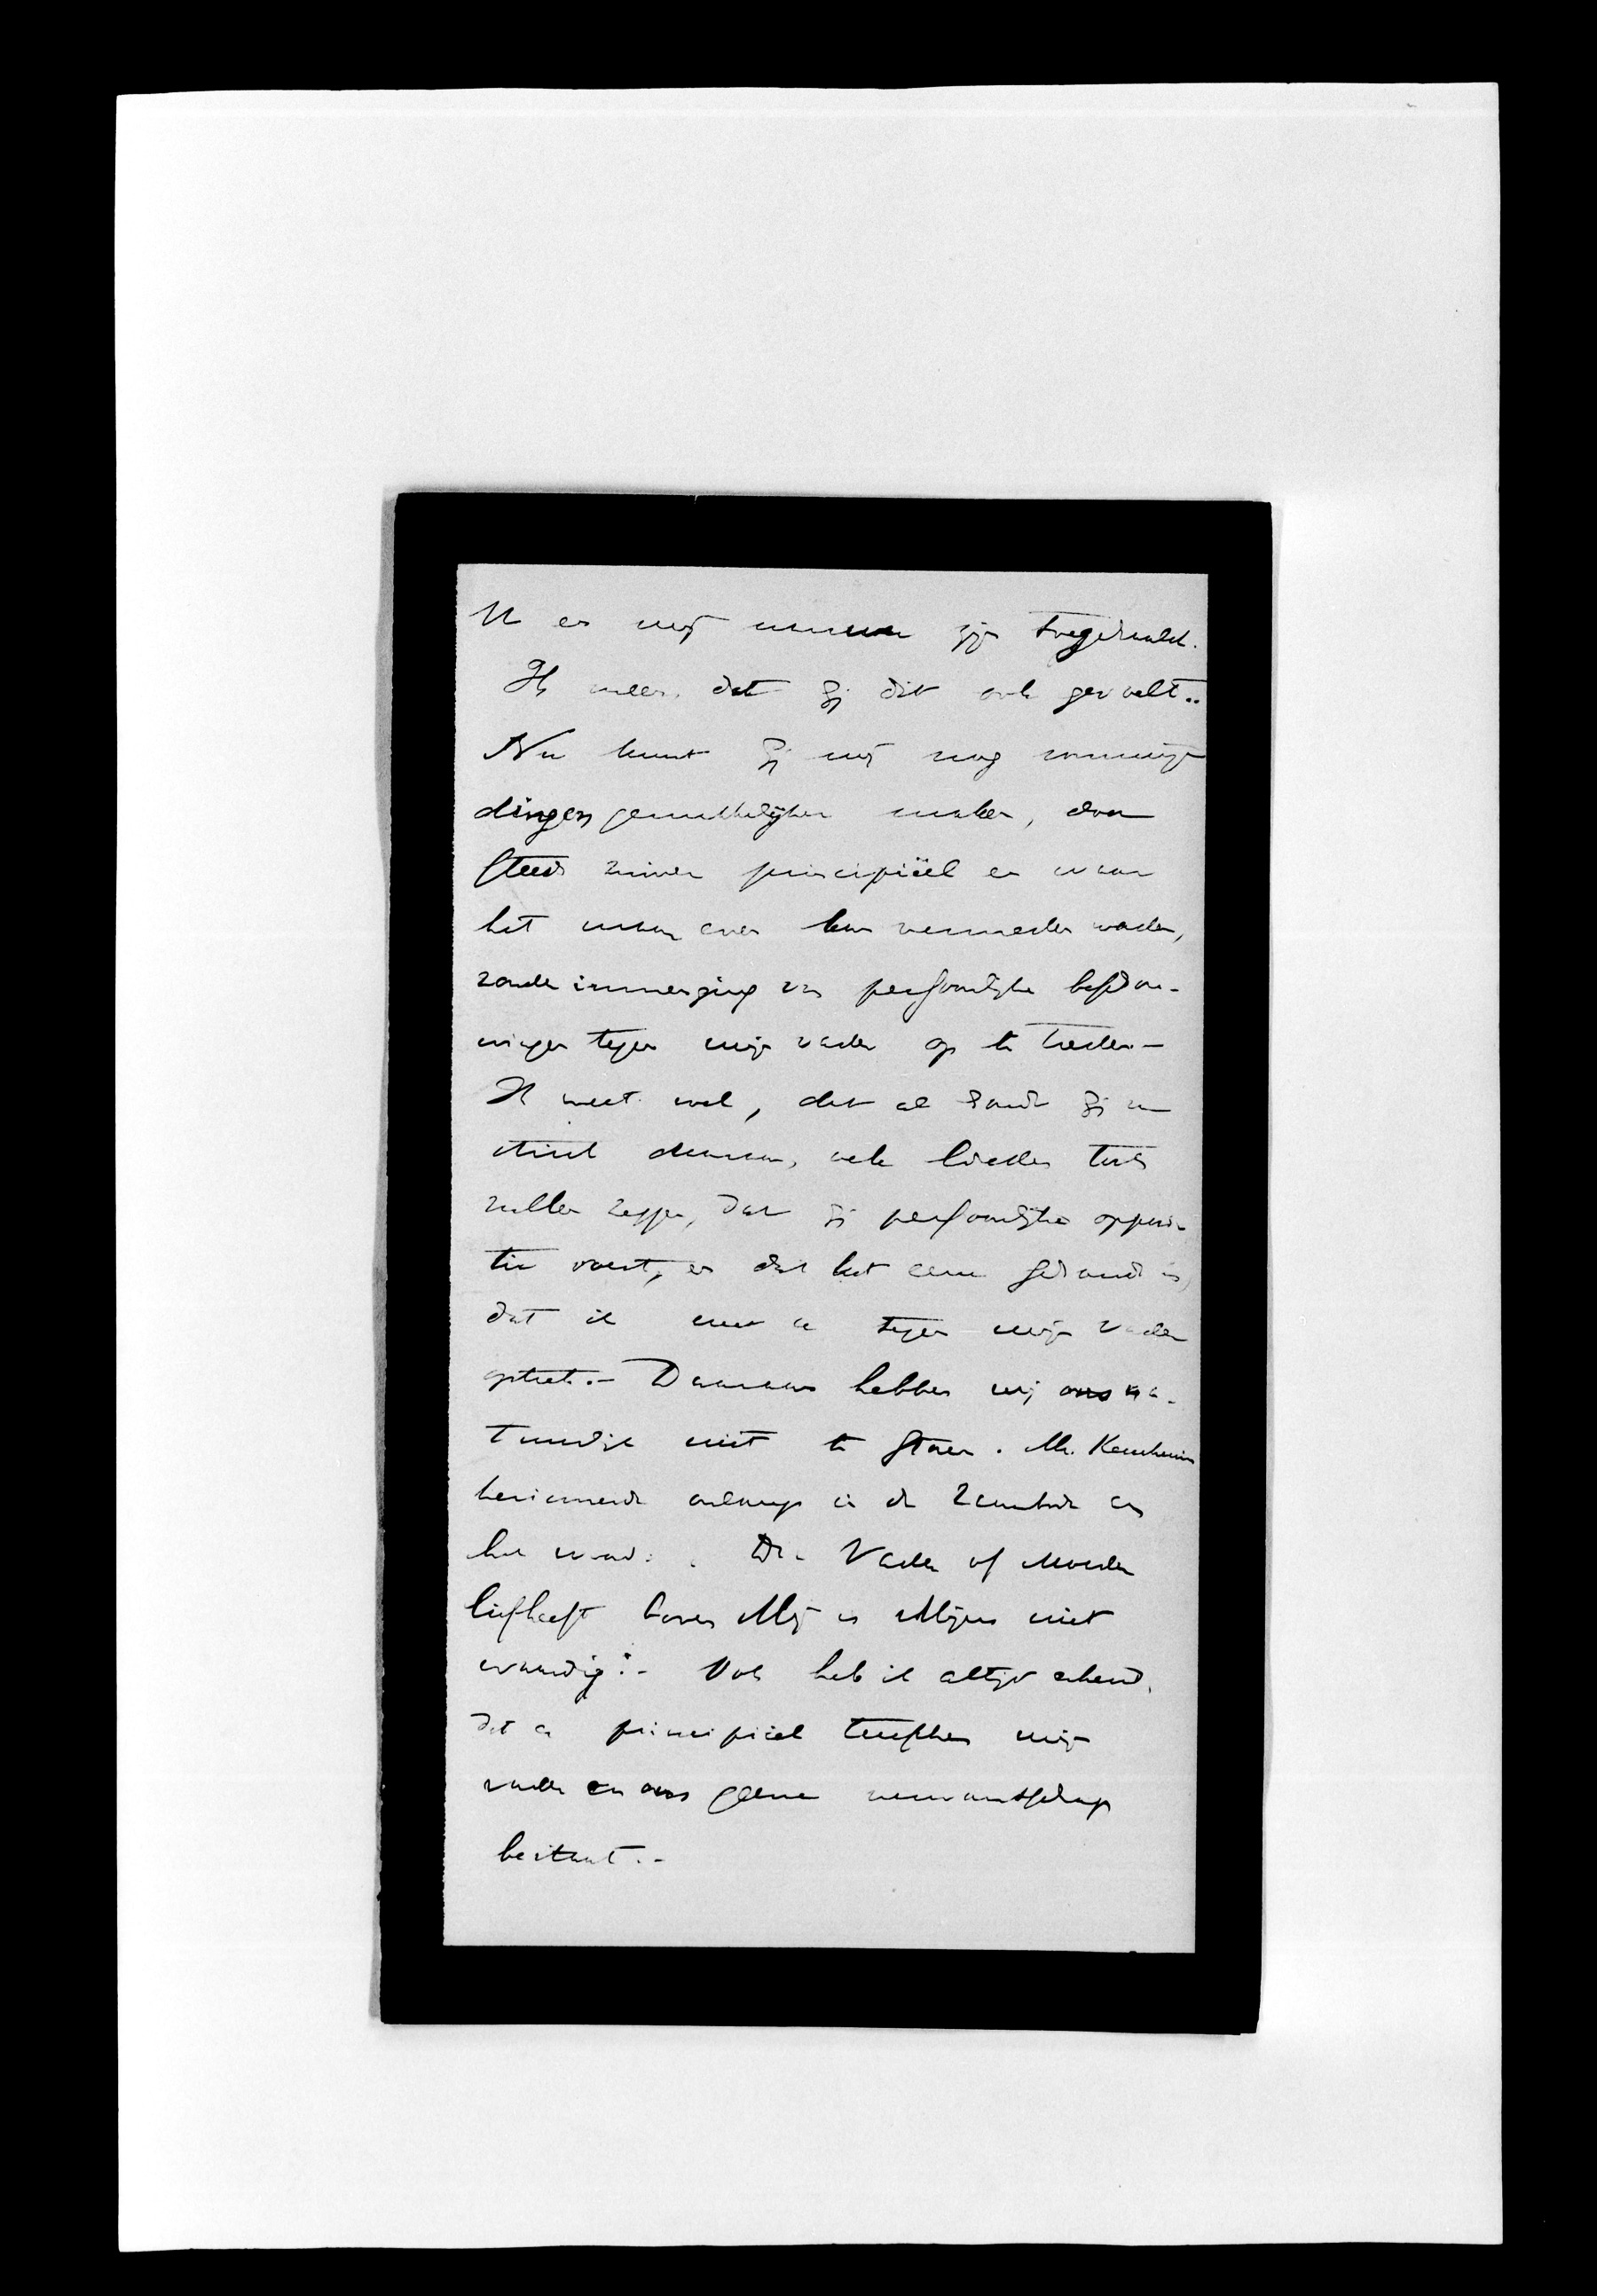 U en mij moeten zijn toegedeeld.
Ik meen, dat gij dit ook gevoelt..
Nu kunt gij mij nog sommige
dingen gemakkelijker maken, door
steeds zuiver principiëel en waar
het maar even kan vermeden worden,
zonder inmenging van persoonlijke beschou-
wingen tegen mijn vader op te treden —
Ik weet wel, dat al houdt gij u
strict daaraan, vele lieden toch
zullen zeggen, dat gij persoonlijke opposi-
tie voert, en dat het eene schande is,
dat ik met u tegen mijn vader
optreed. — Daaraan hebben wij ons na-
tuurlijk niet te storen. Mr. Keuchenius
herinnerde onlangs in de Zuembode aan
het woord: Die Vader of Moeder
liefheeft boven Mij is Mijns niet
waardig:- Ook heb ik altijd erkend,
dat er principieel tusschen mijn
vader en ons geene verwantschap
bestaat.-